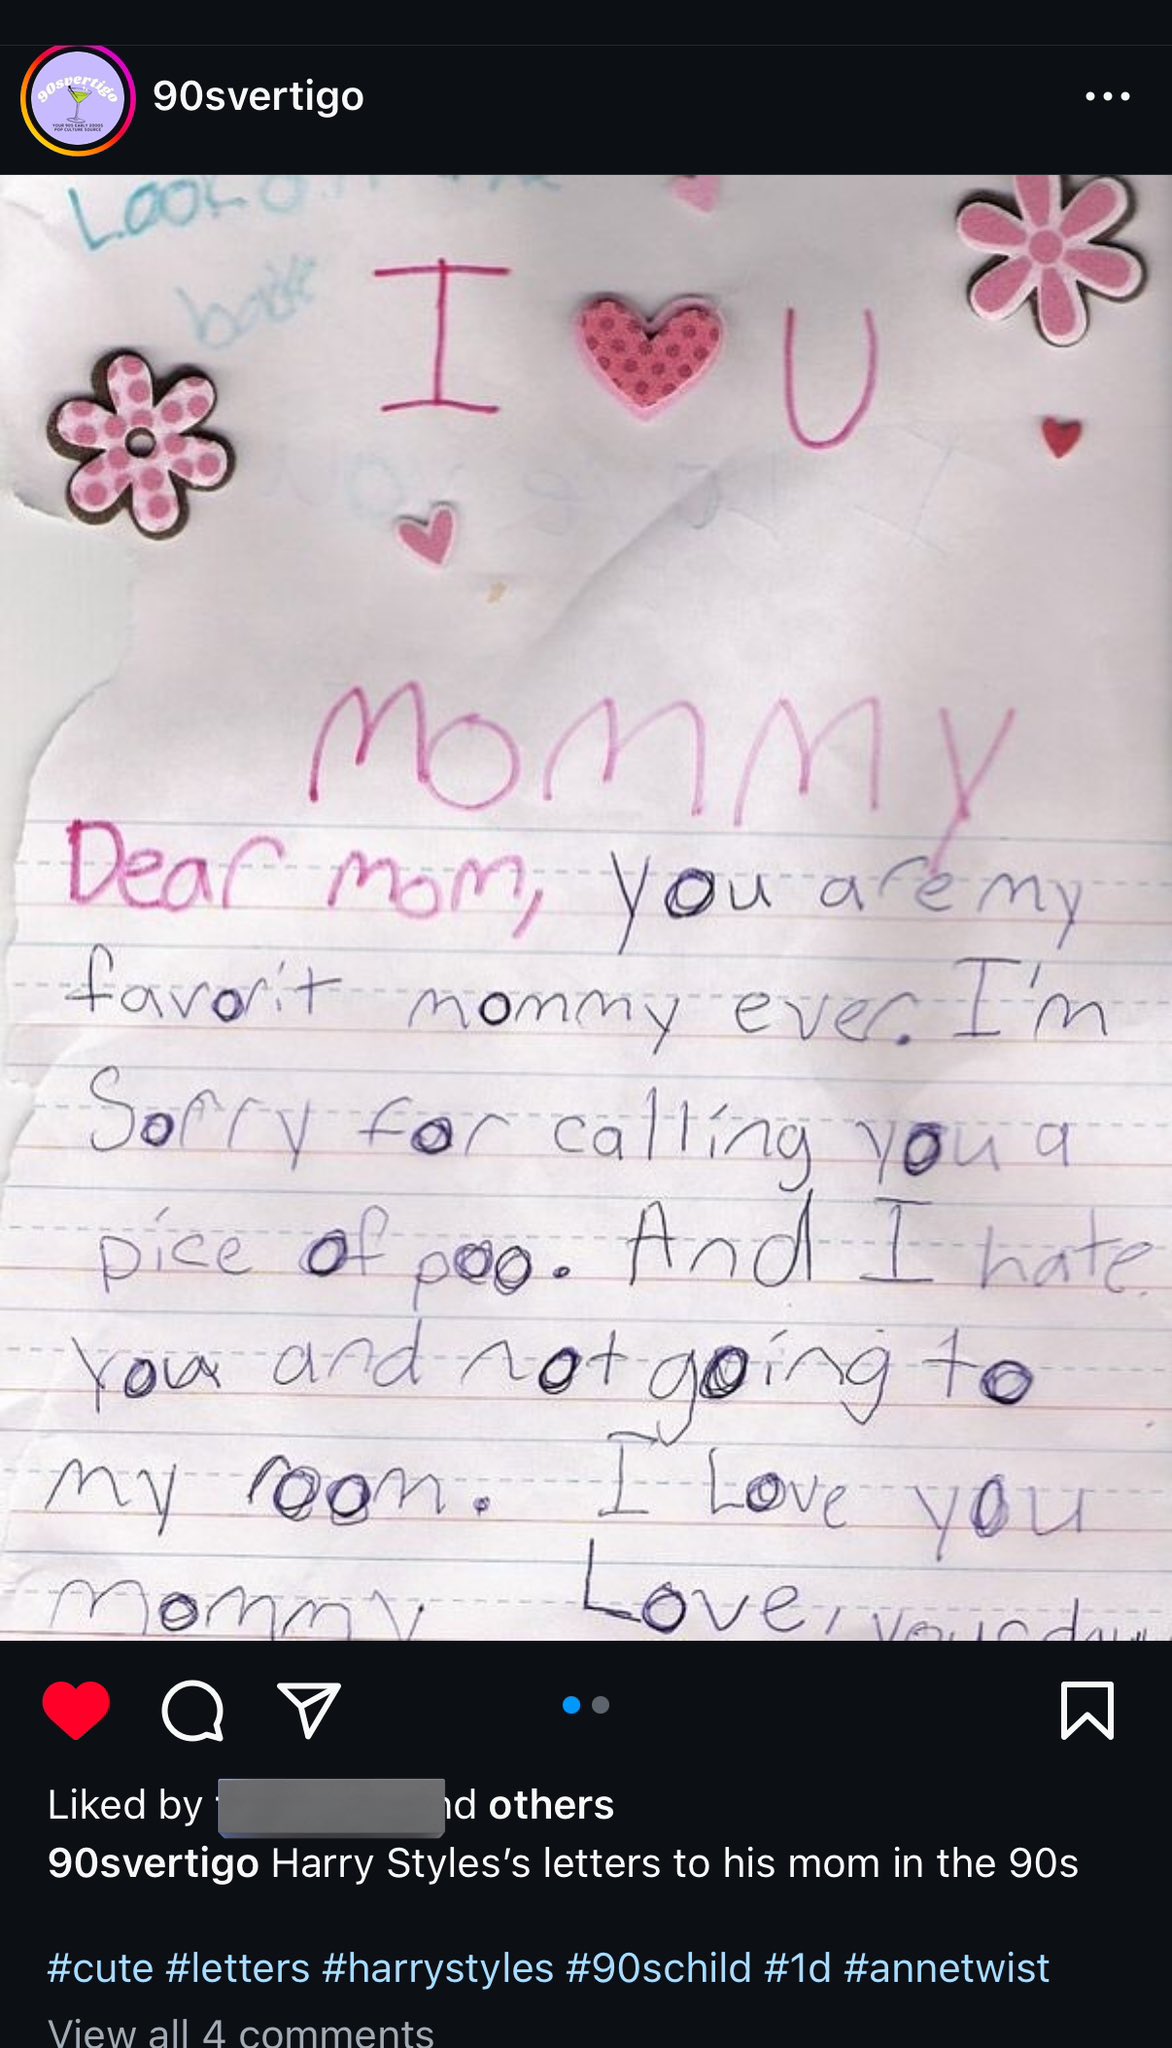 90svertigo
90svertigo
YOUR 90S EARLY 2000S
POP CULTURE SOURCE
Look on the
back
I U
Mommy
Dear mom, you are my
favorit mommy ever. I'm
Sorry for calling you a
pice of poo. And I hate
you and not going to
my room. I Love you
mommy Love, your
Liked by nd others
90svertigo Harry Styles’s letters to his mom in the 90s
#cute #letters #harrystyles #90schild #1d #annetwist
View all 4 comments